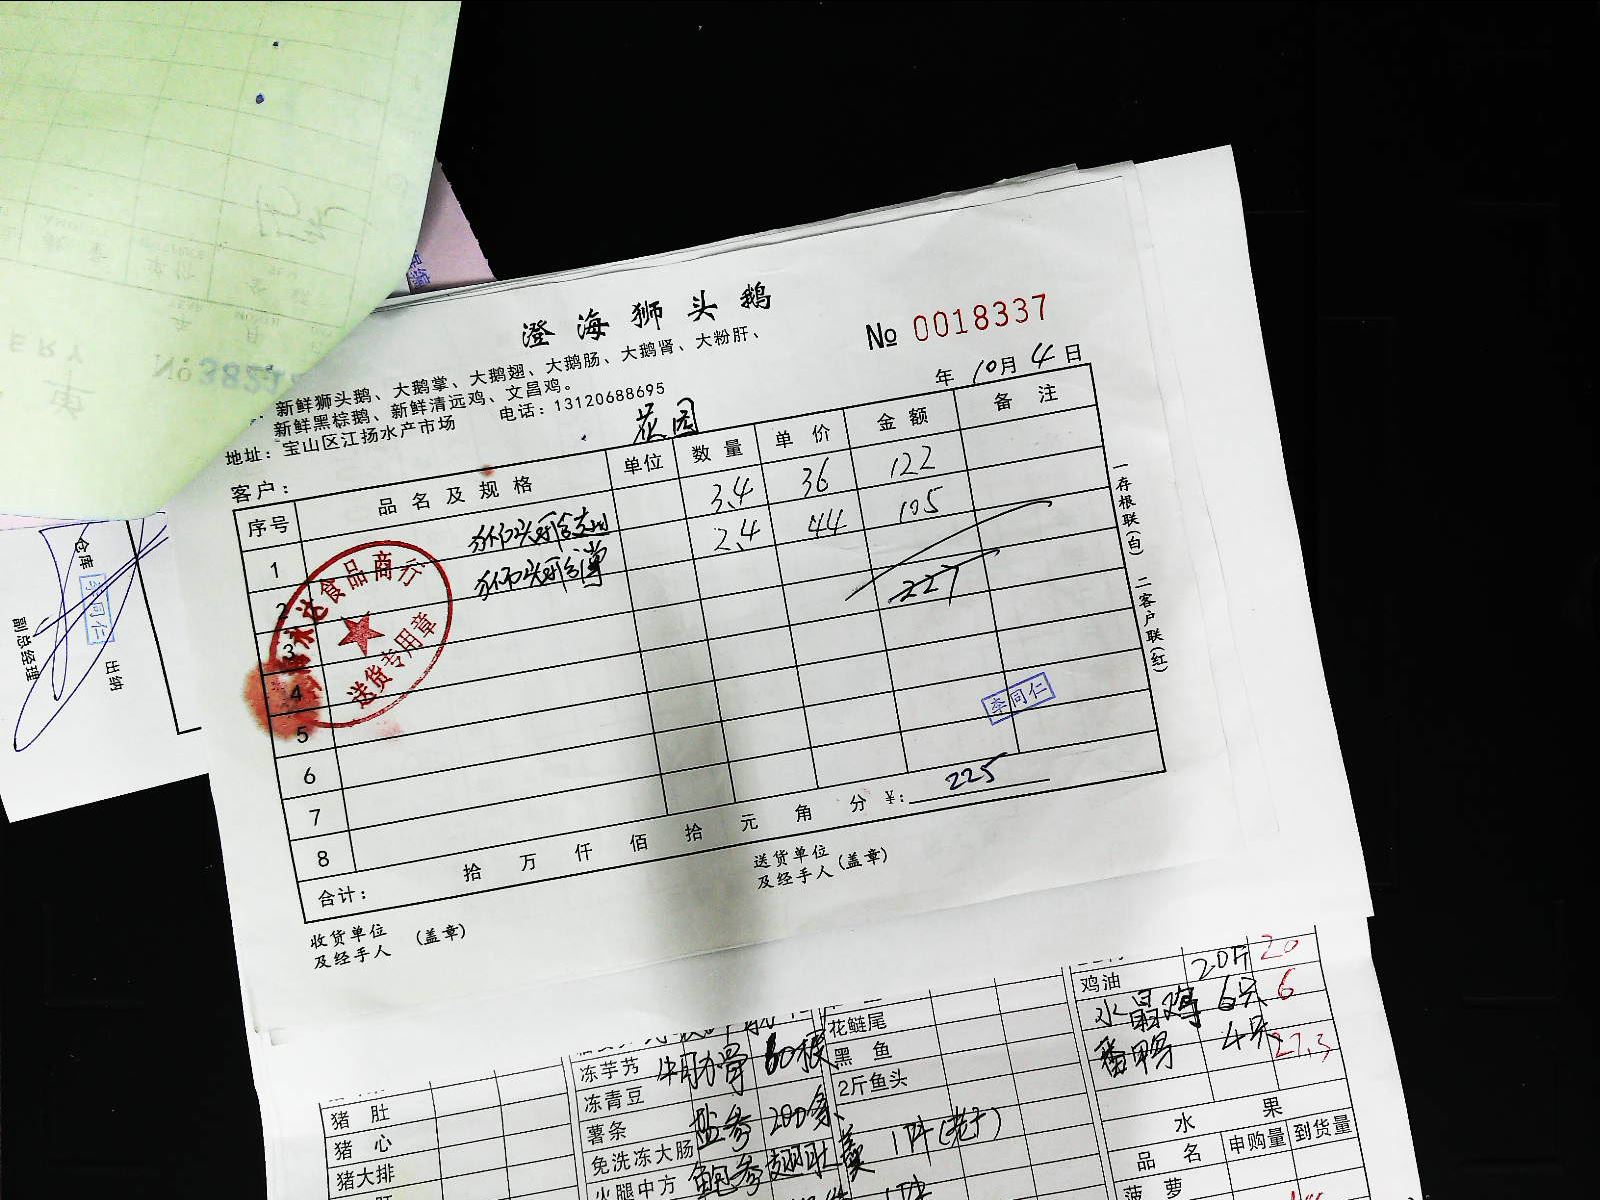 澄海狮头鹅
№ 0018337
新鲜狮头鹅、大鹅掌、大鹅翅、大鹅肠、大鹅肾、大粉肝、
新鲜黑棕鹅、新鲜清远鸡、文昌鸡。
地址：宝山区江扬水产市场 电话：13120688695
年 10月 4日
客户： 花园
序号 品名及规格 单位 数量 单价 金额 备注
1 狮头鹅 3.4 36 122
2 狮头鹅掌 2.4 44 105
3 227
4
5
6
7
8
李同仁
合计： 拾 万 仟 佰 拾 元 角 分 ¥: 225
收货单位
及经手人 (盖章)
送货单位
及经手人 (盖章)
一存根联(白) 二客户联(红)
永达食品商行
送货专用章
仓库 李同仁 出纳
副总经理
猪肚
猪心
猪大排
冻芋艿 牛肋骨 60根
冻青豆
薯条 盐参 200条
免洗冻大肠
火腿中方
花鲢尾
黑鱼
2斤鱼头
鸡油 20斤 20
水晶鸡 6只 6
番鸭 4只 27.3
水果
品名 申购量 到货量
菠萝